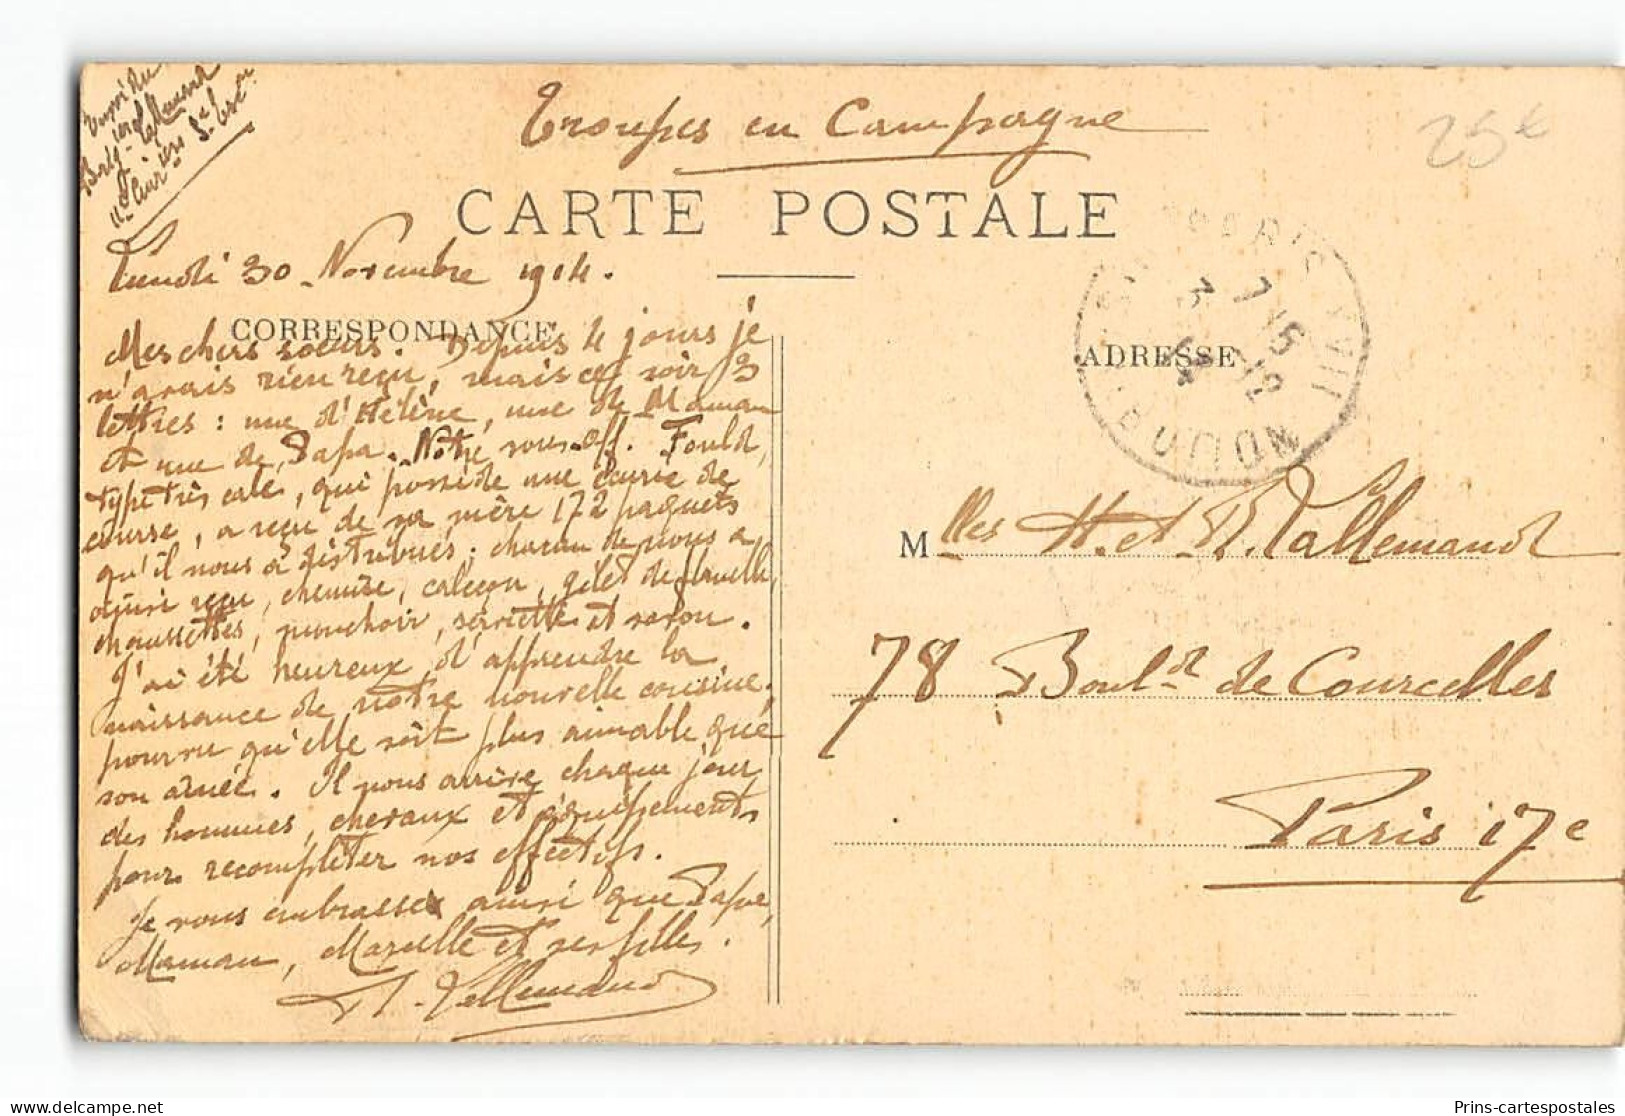 Envoi du
Brig-ier Tallemand
11e Cuir-iers 5e Esc-on
Troupes en Campagne
25€
CARTE POSTALE
Lundi 30 Novembre 1914.
CORRESPONDANCE
Mes chers sœurs. Depuis 4 jours je
n'avais rien reçu, mais ce soir 3
lettres : une d'Hélène, une de Maman
et une de Papa. Notre sous-off. Fould,
type très calé, qui possède une écurie de
course, a reçu de sa mère 172 paquets
qu'il nous a distribués ; chacun de nous a
ainsi reçu, chemise, caleçon, gilet de flanelle,
chaussettes, mouchoir, serviette et savon.
J'ai été heureux d'apprendre la
naissance de notre nouvelle cousine,
pourvu qu'elle soit plus aimable que
son aînée. Il nous arrive chaque jour
des hommes, chevaux et équipements
pour recompléter nos effectifs.
Je vous embrasse ainsi que Papa,
Maman, Marcelle et ses filles.
Tallemand
PARIS XVII
7 15
3 12
14
DISTRIBUTION
ADRESSE
Mlles H. et R. Tallemand
78 Boul-d de Courcelles
Paris 17e
Prins-cartespostales
delcampe.net